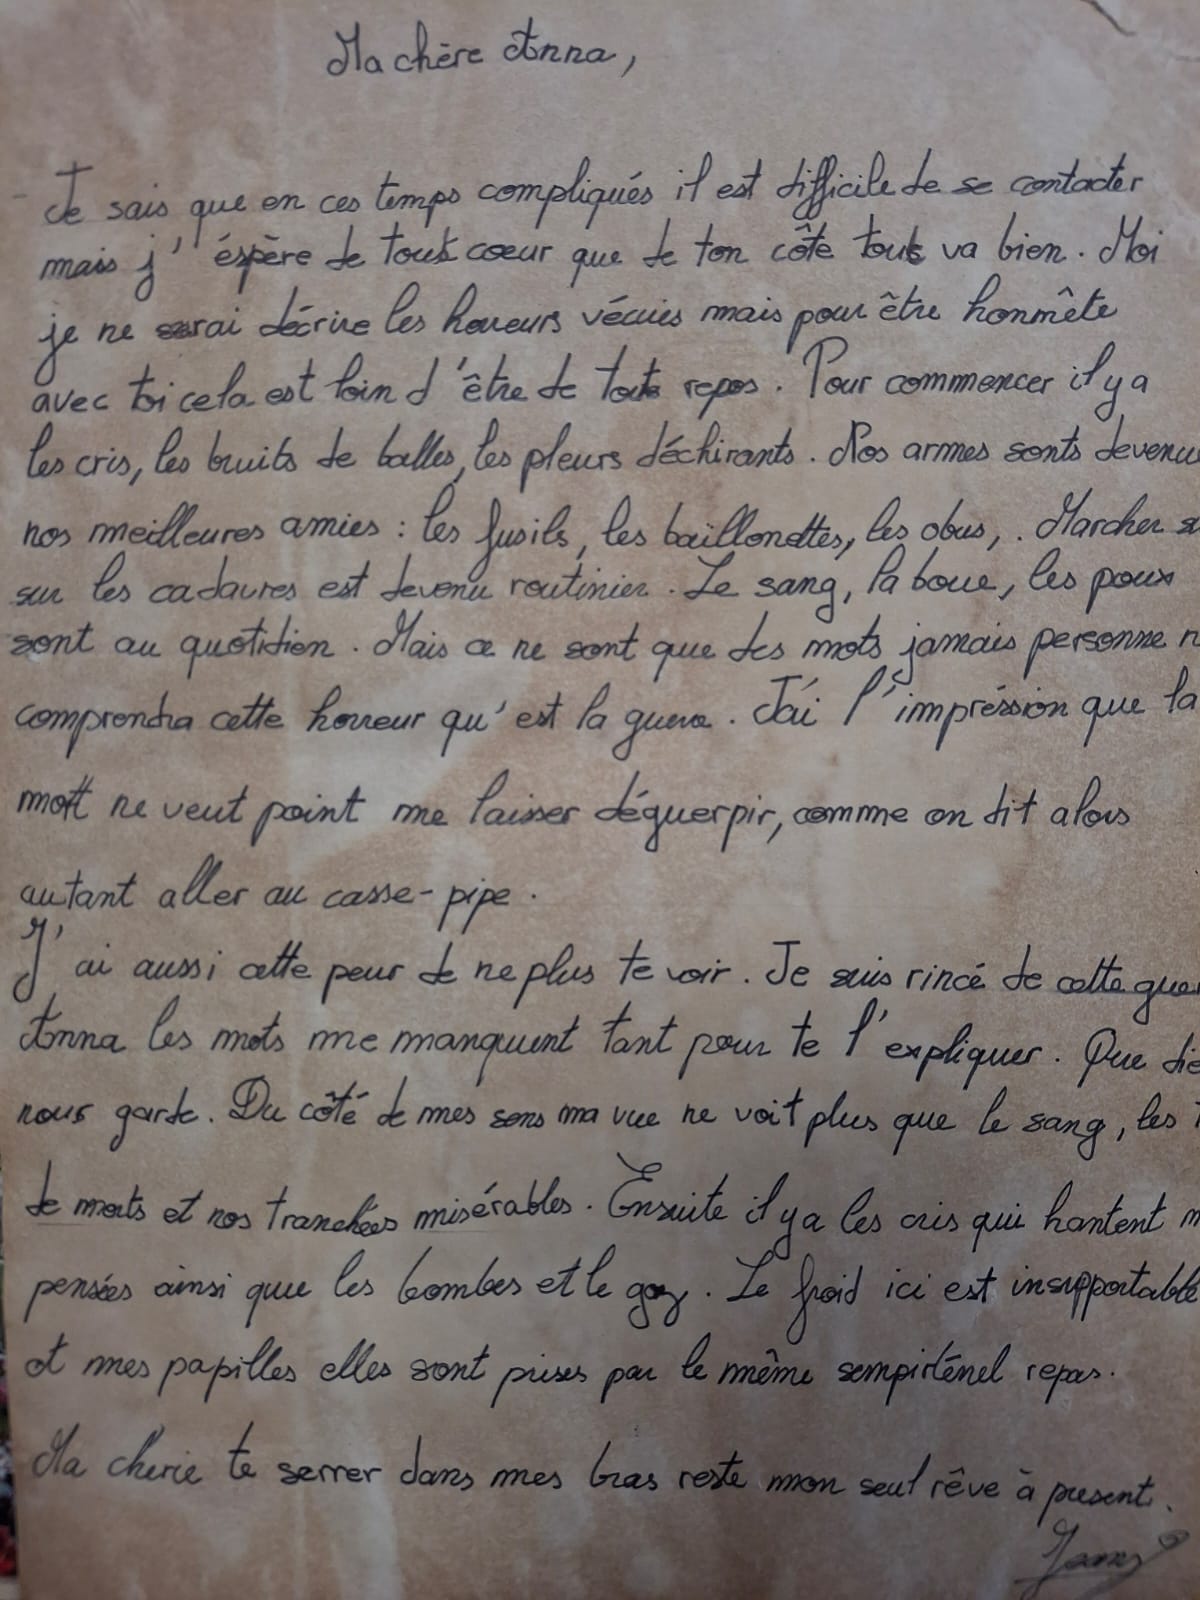 Ma chère Anna,
Je sais que en ces temps compliqués il est difficile de se contacter
mais j'éspère de tout cœur que de ton côte tout va bien. Moi
je ne saurai décrire les horreurs vécues mais pour être honnête
avec toi cela est loin d'être de tout repos. Pour commencer il y a
les cris, les bruits de balles, les pleurs déchirants. Nos armes sonts devenu
nos meilleures amies : les fusils, les baïllonettes, les obus, . Marcher s
sur les cadavres est devenu routinier. Le sang, la boue, les poux
sont au quotidien. Mais ce ne sont que des mots jamais personne n
comprendra cette horreur qu'est la guerre. J'ai l'impréssion que la
mort ne veut point me laisser déguerpir, comme on dit alors
autant aller au casse-pipe.
J'ai aussi cette peur de ne plus te voir. Je suis rincé de cette guer
Anna les mots me manquent tant pour te l'expliquer. Que die
nous garde. Du côté de mes sens ma vue ne voit plus que le sang, les
de morts et nos tranchées misérables. Ensuite il y a les cris qui hantent m
pensées ainsi que les bombes et le gaz. Le froid ici est insupportable
et mes papilles elles sont prises par le même sempirténel repas.
Ma chérie te serrer dans mes bras reste mon seul rêve à present.